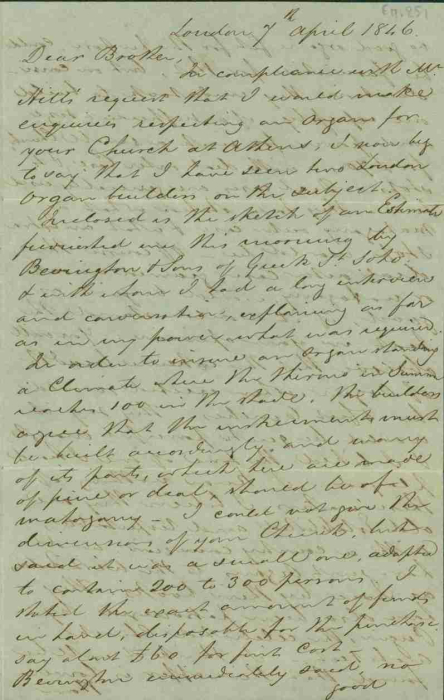 London 7th April 1846.
Dear Brother,
In compliance with Mr
Hill's request that I would make
enquiries respecting an organ for
your Church at Athens, I now beg
to say that I have seen two London
Organ builders on the subject.
Enclosed is the sketch of an Estimate
furnished me this morning by
Bevington & Sons of Greek St Soho
& with whom I had a long interview
and conversation, explaining as far
as in my power what was required
In order to insure an organ standing
a Climate where the thermo in Summer
reaches 100 in the shade. The builders
agree that the instruments must
be built accordingly and many
of its parts, which here are made
of pine or deal, should be of
mahogany - I could not give the
dimensions of your Church, but
said it was a small one adapted
to contain 200 to 300 persons I
stated the exact amount of funds
in hand, disposable for the purchase
say about £60 for first Cost -
Bevington immediately said no
good